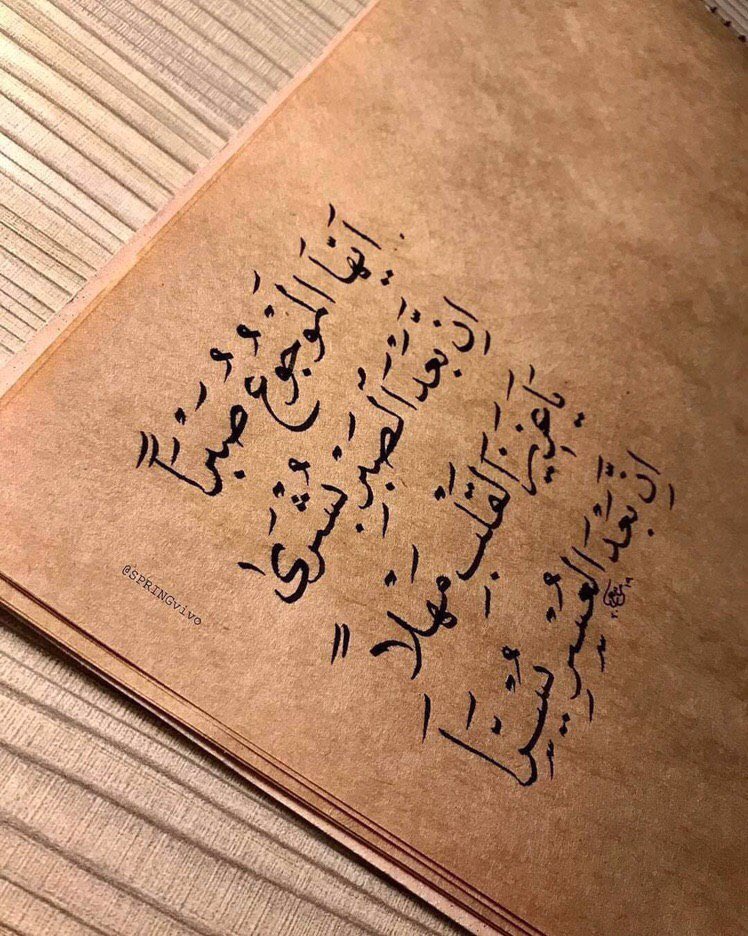 أَيُّهَا الْمَوْجُوعُ صَبْرًا
إِنَّ بَعْدَ الصَّبْرِ بُشْرَى
يَا عَزِيزَ الْقَلْبِ مَهْلًا
إِنَّ بَعْدَ الْعُسْرِ يُسْرًا
@SPRINGvivo